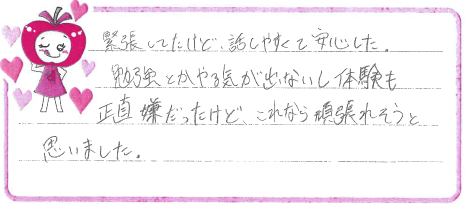 緊張してたけど、話しやすくて安心した。
勉強とかやる気が出ないし体験も
正直嫌だったけど、これなら頑張れそうと
思いました。